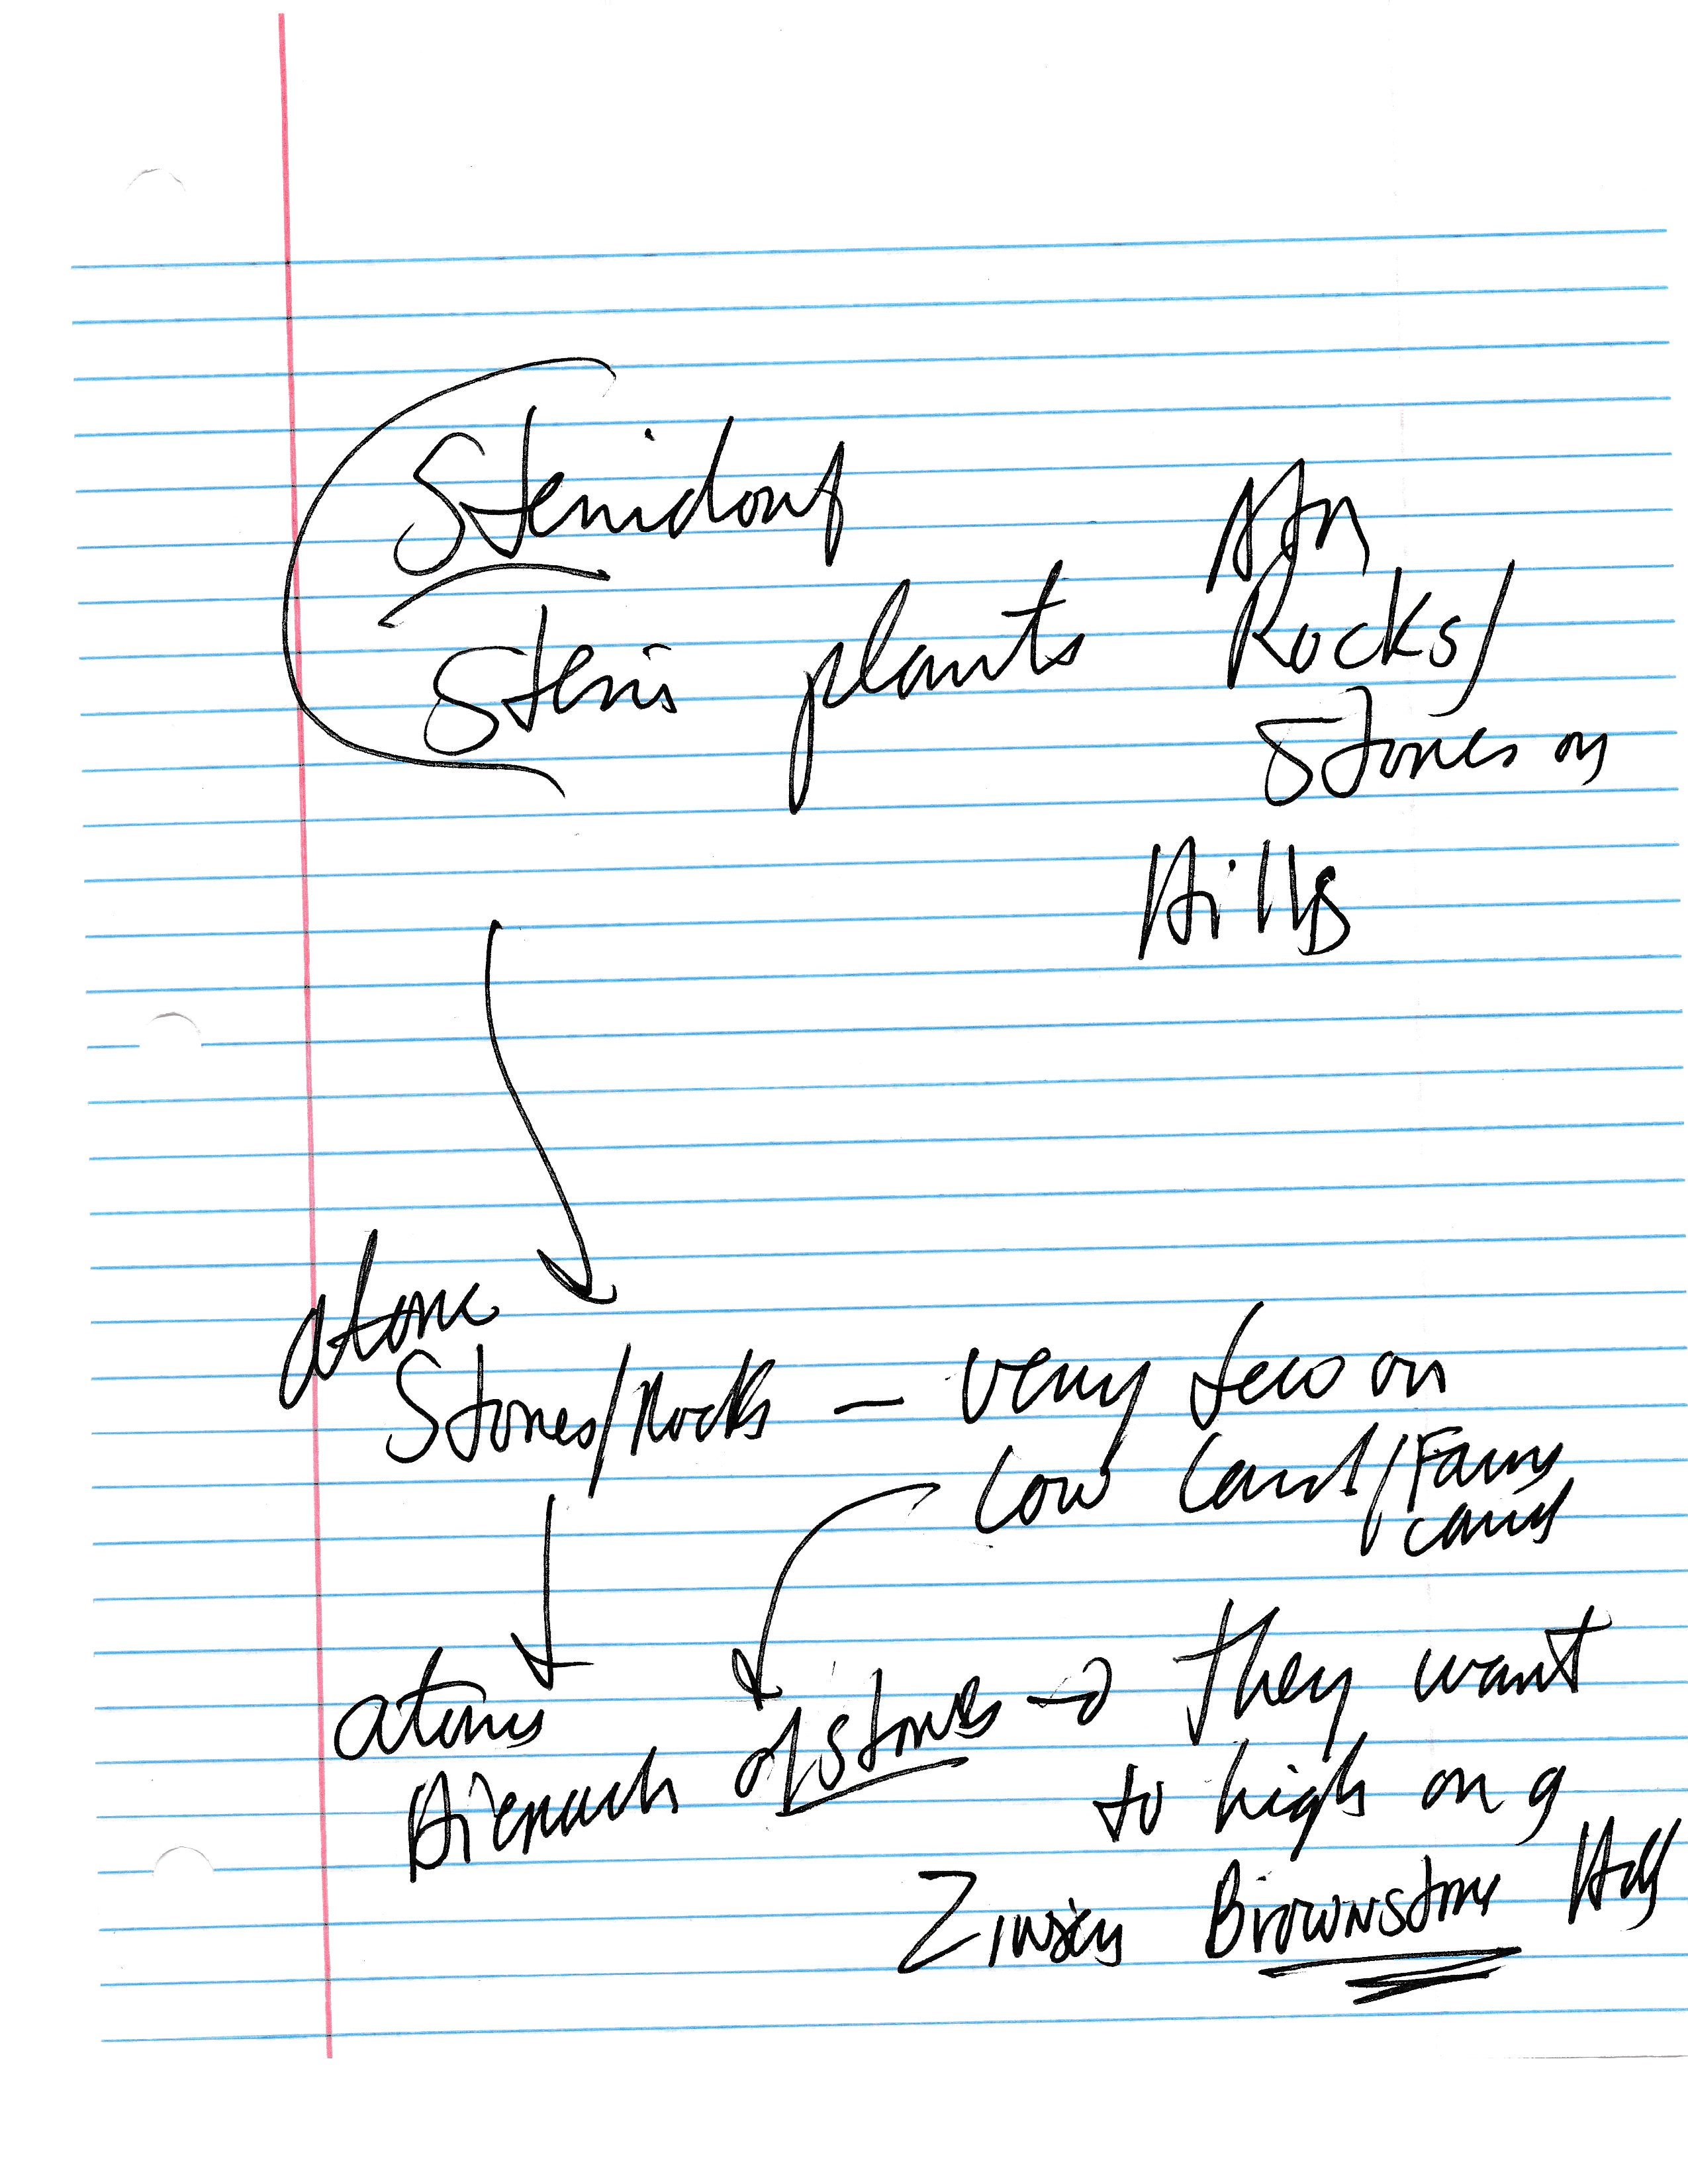 Stenidorf
Stenis plants
Rocks/
Stones on
Hills
atone
Stones/Rocks — very few on
low land/Farm
land
atoms
Hierarch of stones → they want
to high on a
Brownstone Hill